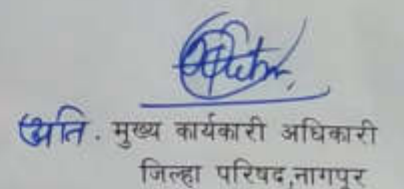 अति. मुख्य कार्यकारी अधिकारी
जिल्हा परिषद,नागपुर